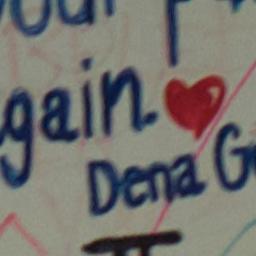 our p
gain.
Dena G